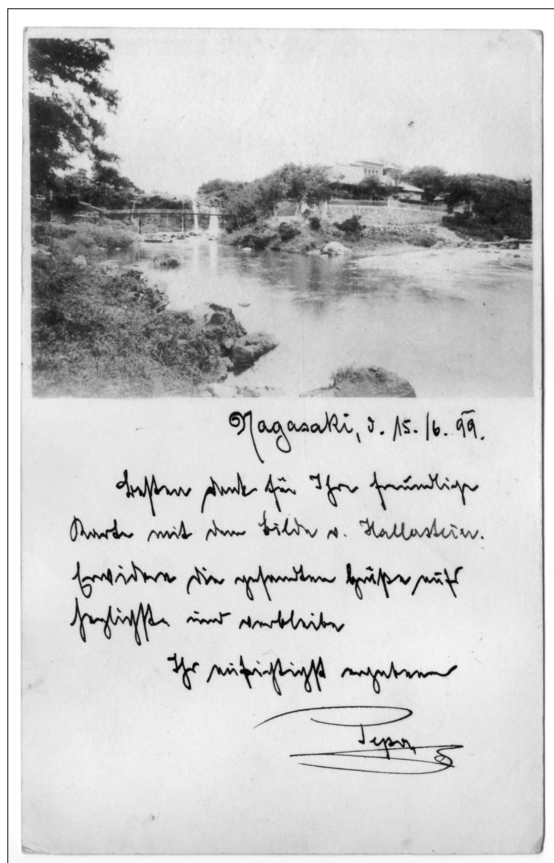 Nagasaki, d. 15./6. 99.
Besten Dank für Ihre freundliche
Karte mit dem Bilde v. Hallstein.
Erwidere die gesandten Grüße auf's
herzlichste und verbleibe
Ihr aufrichtigst ergebener